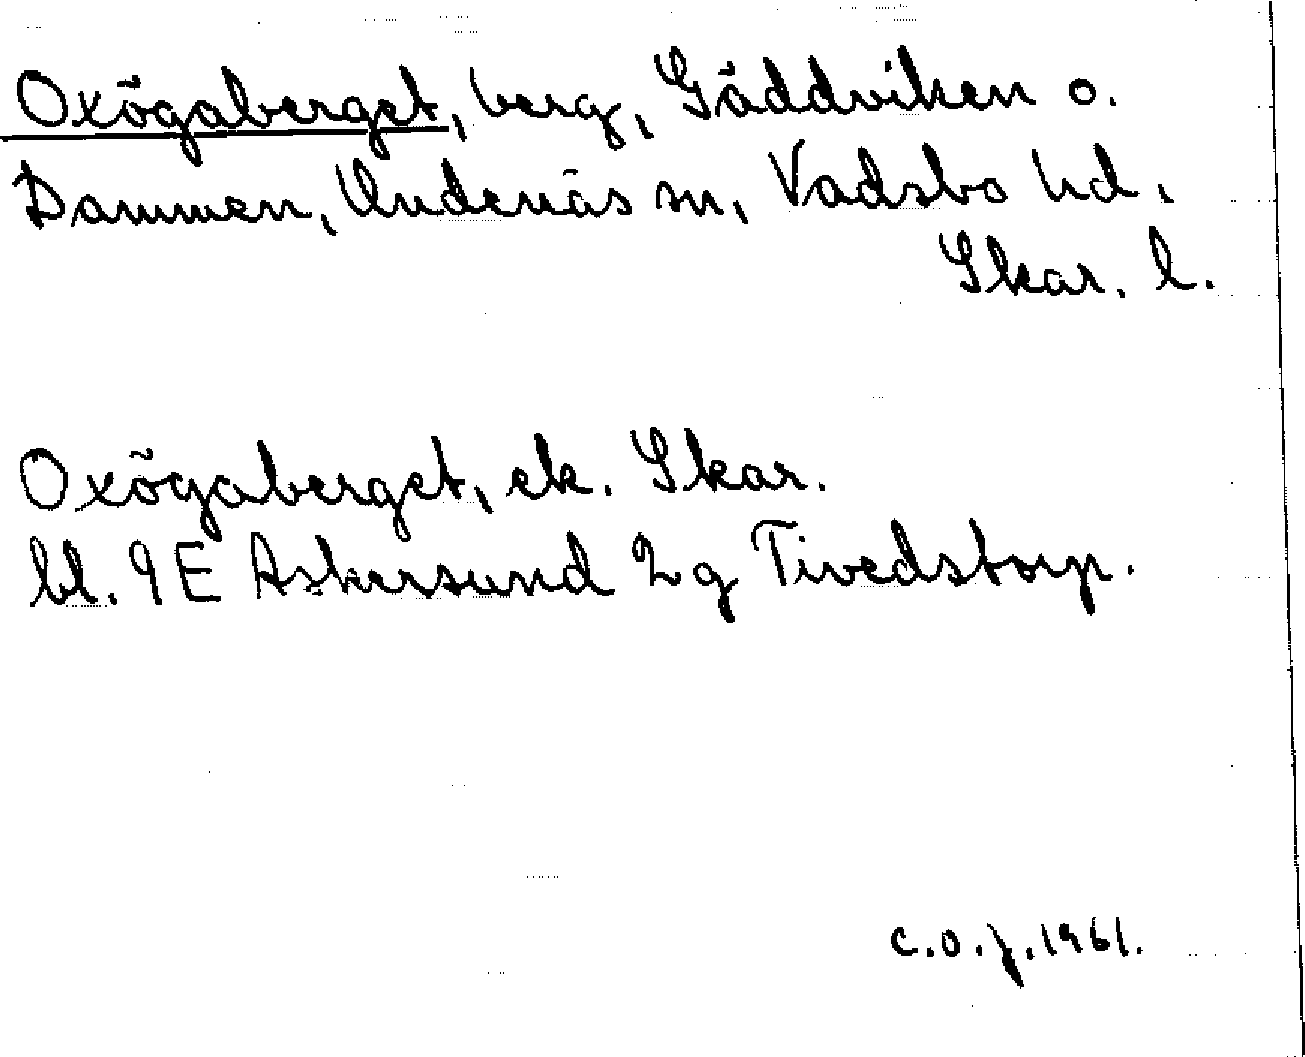 Oxögaberget, berg, Gäddviken o.
Dammen, Undenäs sn, Vadsbo hd,
Skar. l.
Oxögaberget, ek. Skar.
bl. 9E Askersund 2g Tivedstorp.
C.O.J. 1961.